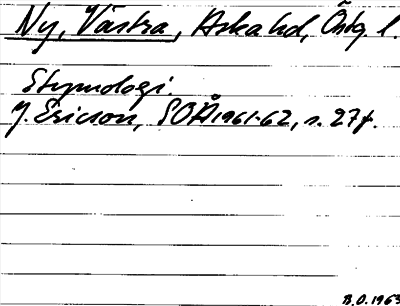 Ny, Västra, Aska hd, Östg. l.
Etymologi.
J. Ericson, SOÅ 1961-62, s. 27f.
B.O. 1963